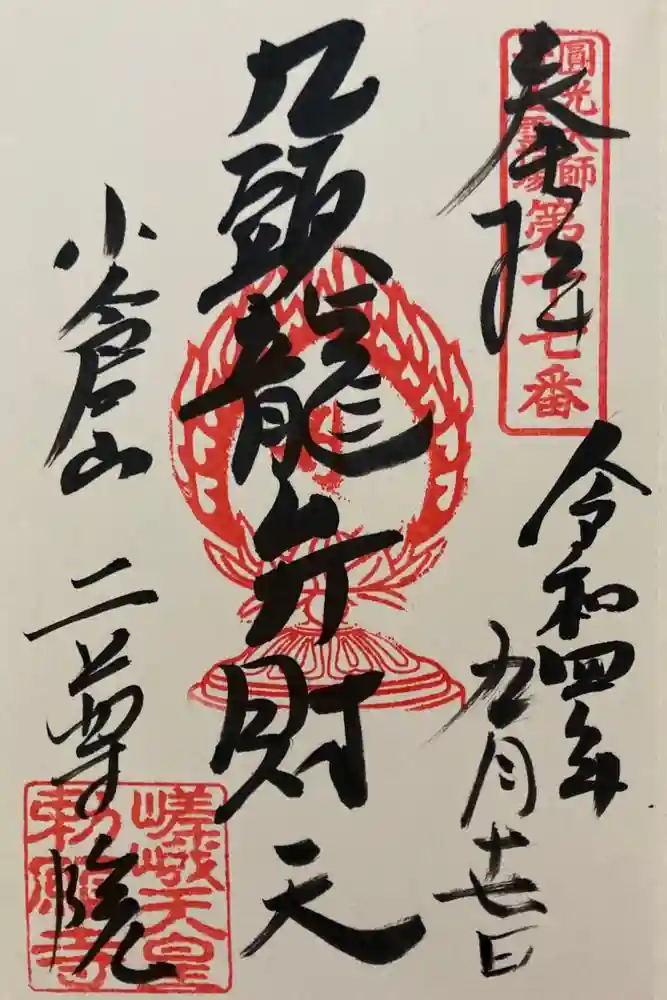 奉拝
圓光大師
霊場
第十七番
令和四年
九月十七日
九頭龍弁財天
小倉山
二尊院
嵯峨天皇
勅願寺